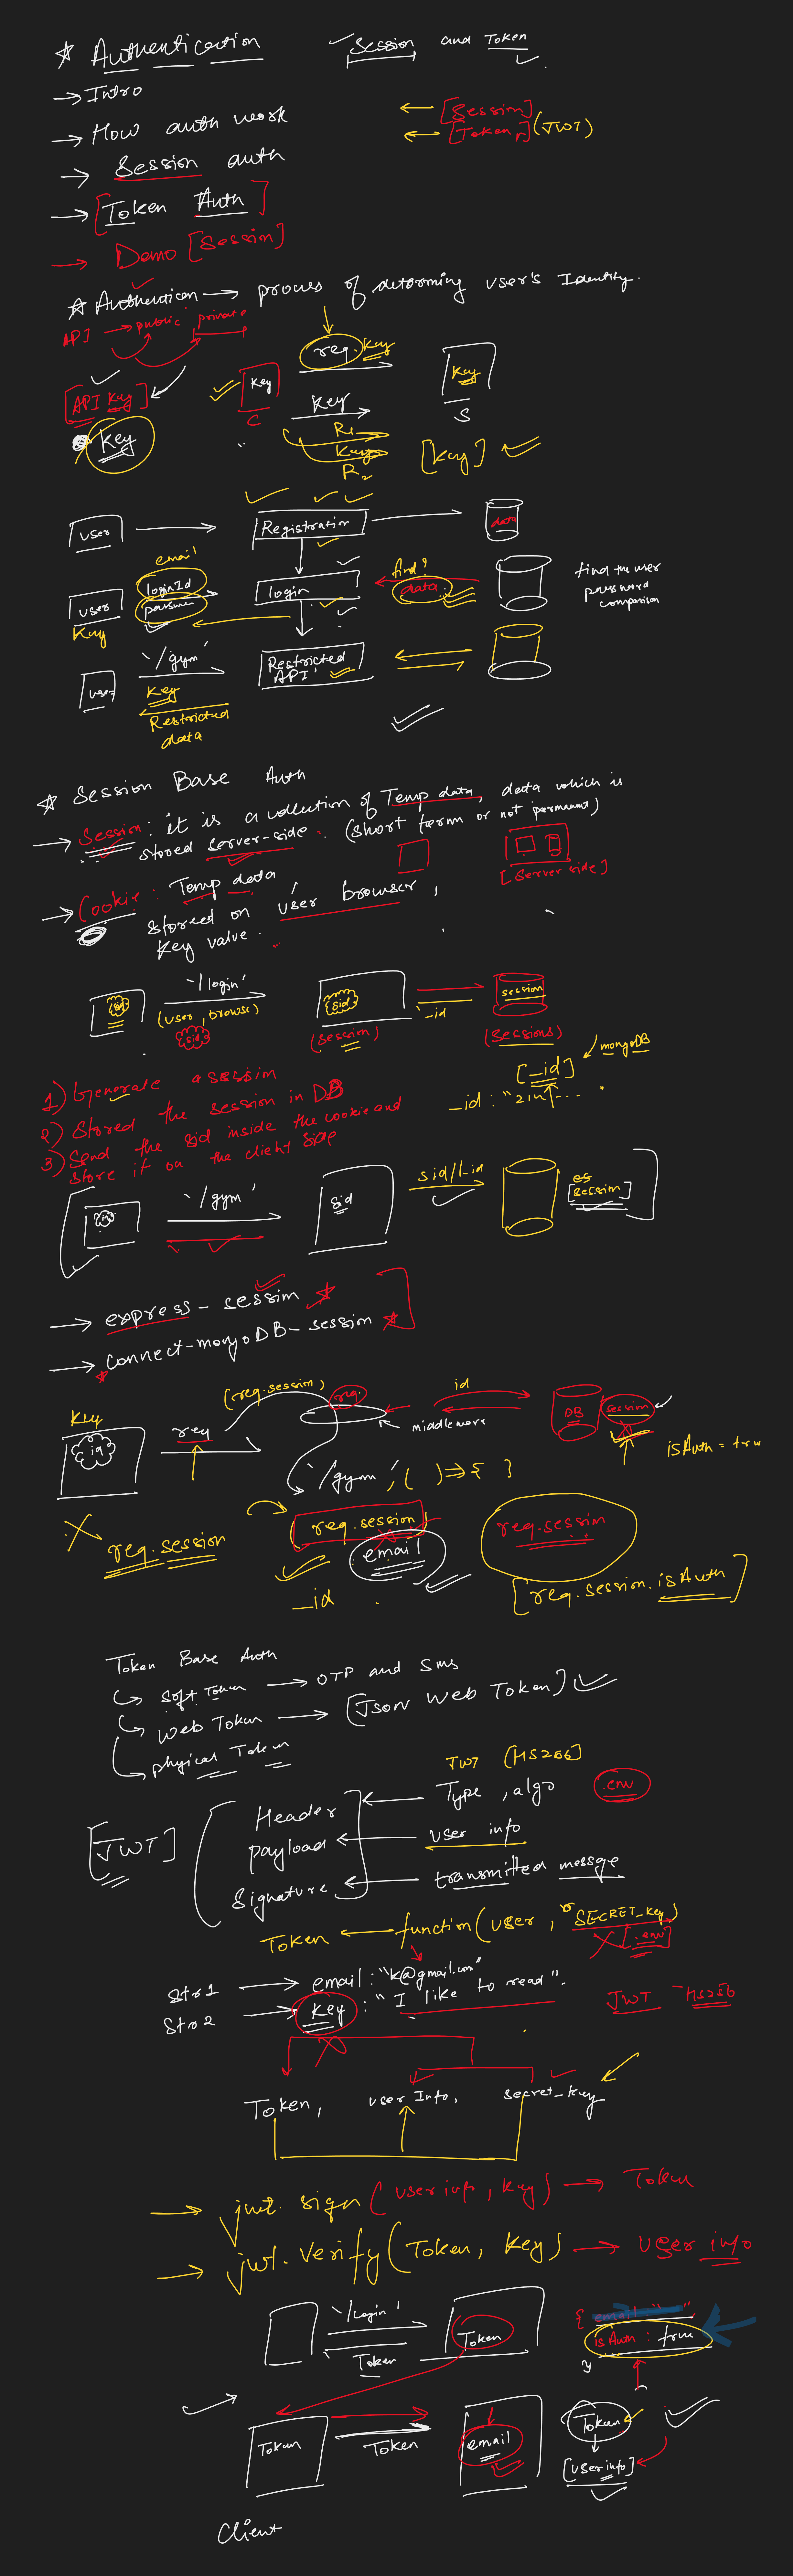 * Authentication
Session and Token
→ Intro
→ How auth work
← [Session]
← [Token] (JWT)
→ Session auth
→ [Token Auth]
→ Demo [Session]
* Authentication → process of determing user's Identity.
API → public private
req. key
[API Key]
key
C
key
key
S
Key
R1
Key
R2
[key]
user
Registration
data
email
user
loginId
password
login
find?
data
find the user
password
comparison
Key
'/gym'
user
Key
Restricted
API
Restricted
data
* Session Base Auth
→ Session : it is a collection of Temp data, data which is
stored server-side. (short term or not permanent)
[Server side]
→ Cookie : Temp data
stored on user browser,
key value.
sid
'/login'
(user, browse)
sid
sid
(session)
_id
session
(Sessions)
[_id] mongoDB
_id : "21u1....
1) Generate a session
2) Stored the session in DB
3) Send the sid inside the cookie and
store it on the client side
'/gym'
sid
sid/_id
[session]
→ express-session *
→ connect-mongoDB-session *
Key
req
(req.session)
req.
middleware
id
DB
session
isAuth = true
'/gym', ( ) => { }
req.session
(req.session)
email
_id
req.session
[req.session.isAuth]
Token Base Auth
↳ soft Token → OTP and Sms
↳ Web Token → [Json Web Token]
↳ phyical Token
JWT [HS256]
[JWT]
Header ← Type, algo
.env
payload ← user info
Signature ← transmitted messge
Token ← function(user, SECRET_key)
[.env]
Str1 → email : "k@gmail.com"
Str2 → Key : "I like to read".
JWT HS256
Token, user Info, secret_key
→ jwt.sign(userinfo, key) → Token
→ jwt.verify(Token, Key) → user info
'/login'
Token
Token
{ email : " ",
isAuth : true
}
Token
Token
email
Token
[userinfo]
Client